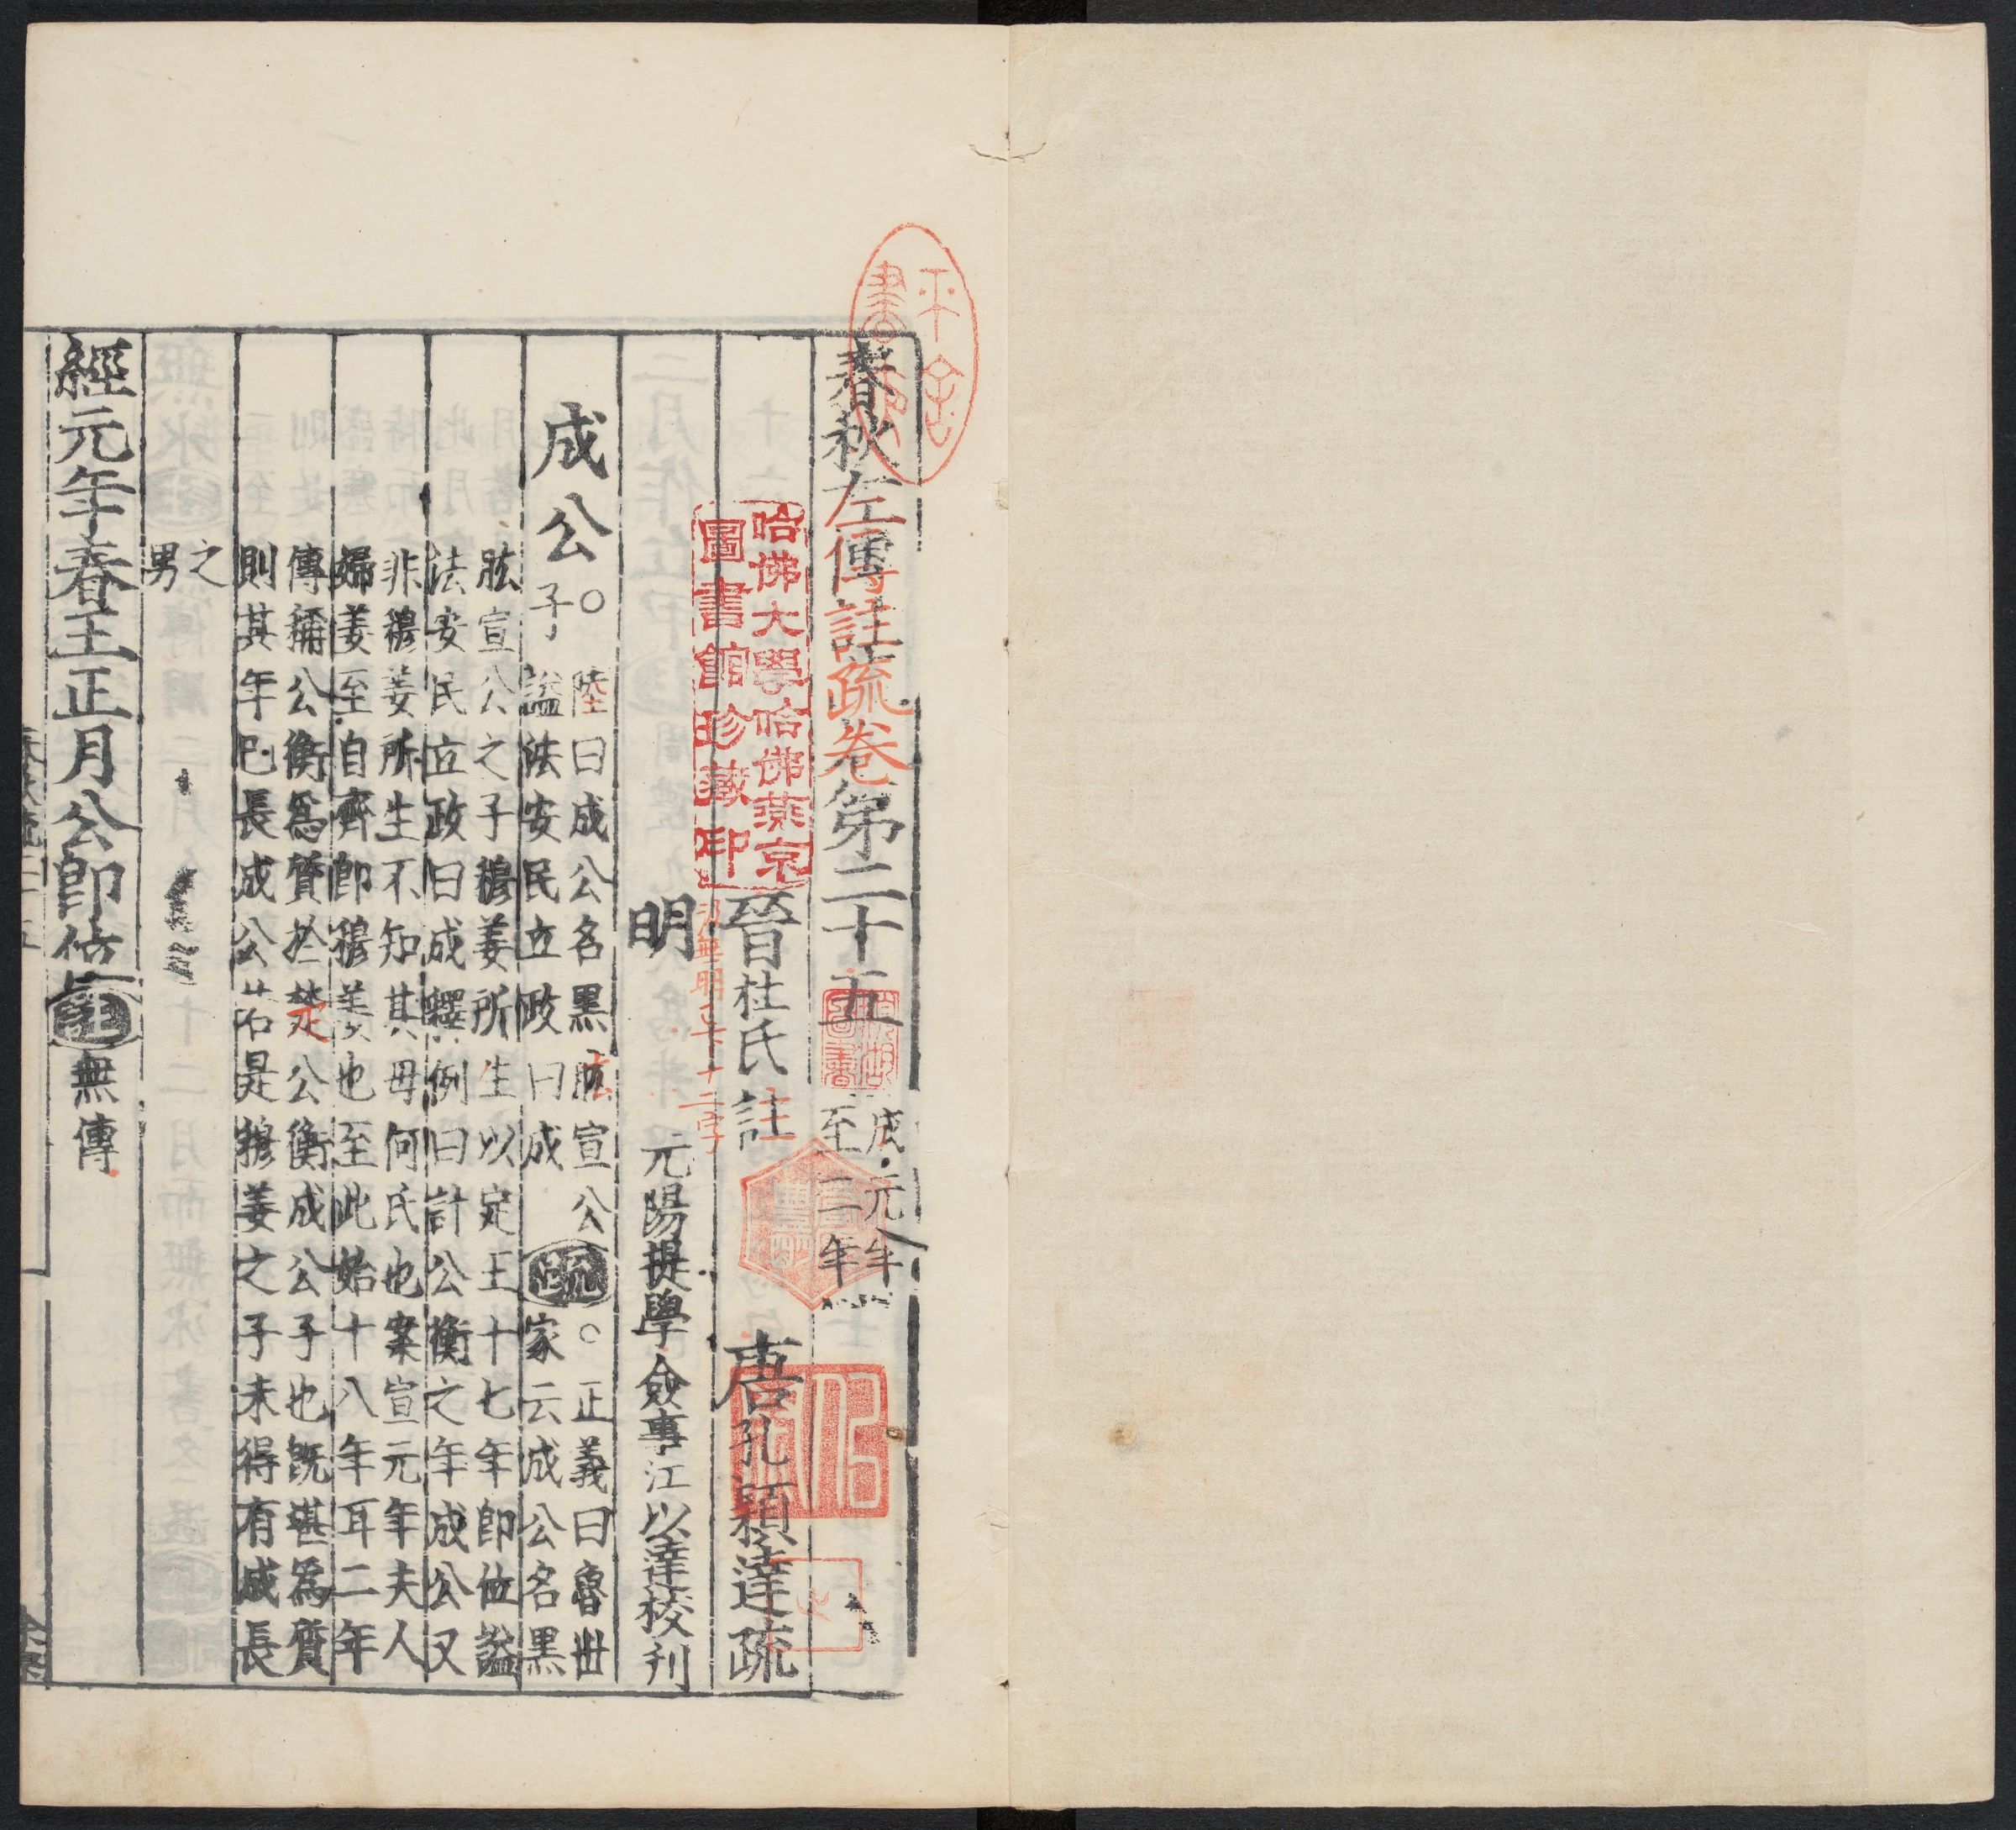 春秋左傳註疏卷第二十五 成元年
至二年
晉杜氏註 唐孔穎達疏
明 元陽提學僉事江以達校刊
成公○陸曰成公名黑肱宣公
子謚法安民立政曰成
疏○正義曰魯世
家云成公名黑
肱宣公之子穆姜所生以定王十七年即位謚
法安民立政曰成釋例曰計公衡之年成公又
非穆姜所生不知其母何氏也案宣元年夫人
婦姜至自齊即穆姜也至此始十八年耳二年
傳稱公衡為質於楚公衡成公子也既堪為質
則其年已長成公若是穆姜之子未得有成長
之
男
經元年春王正月公即位註無傳
哈佛大學哈佛燕京
圖書館珍藏印
明
十二字